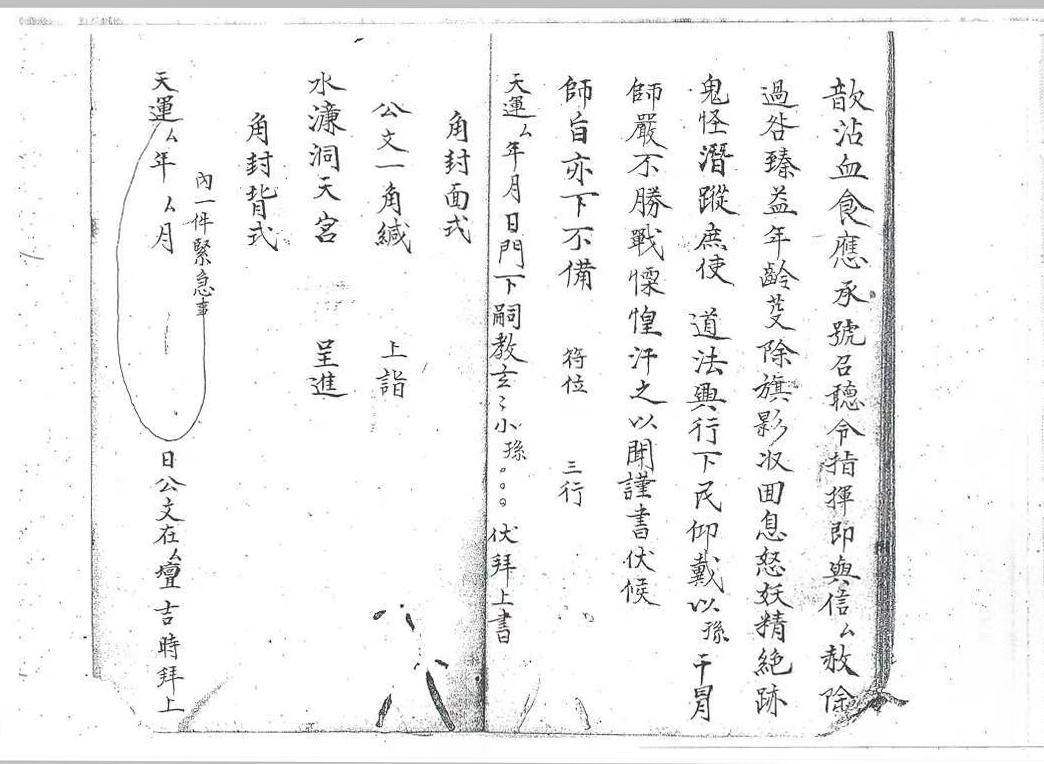 歆沾血食應承號召聽令指揮即與信厶赦除
過咎臻益年齡芟除旗影收回息怒妖精絕跡
鬼怪潛蹤庶使 道法興行下民仰戴以孫干冒
師嚴不勝戰慄惶汗之以聞謹書伏候
師旨亦下不備 符位 三行
天運厶年月日門下嗣教玄〻小孫。。。伏拜上書
角封面式
公文一角緘 上詣
水濂洞天宮 呈進
角封背式
內一件緊急事
天運厶年厶月 日公文在厶壇吉時拜上